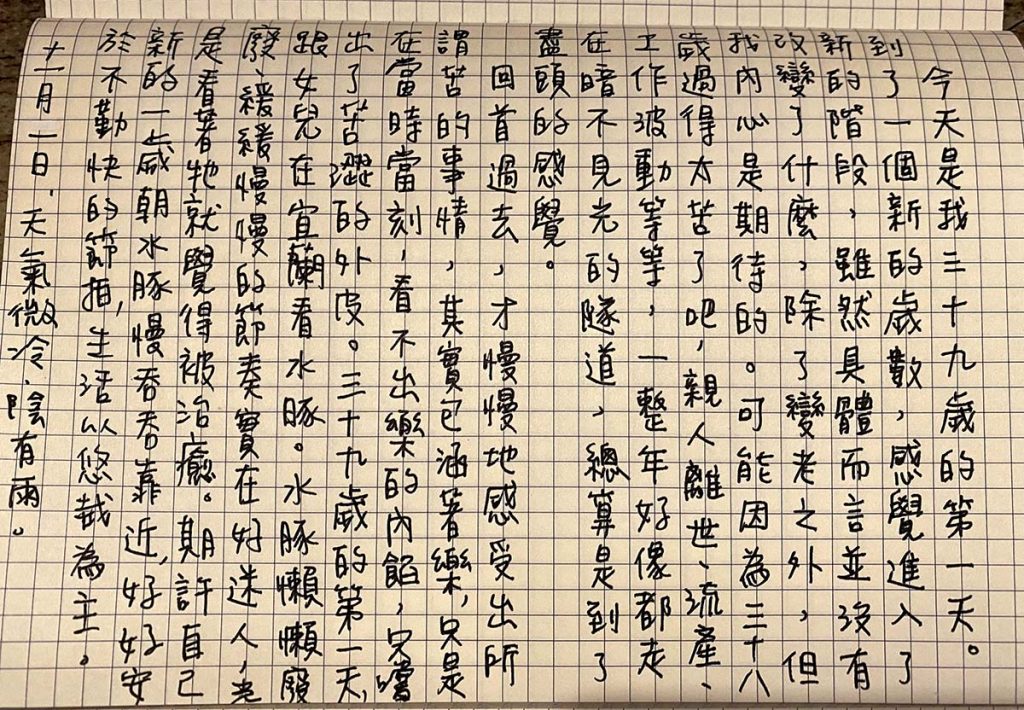 今天是我三十九歲的第一天。
到了一個新的歲數，感覺進入了
新的階段，雖然具體而言並沒有
改變了什麼，除了變老之外，但
我內心是期待的。可能因為三十八
歲過得太苦了吧，親人離世、流產、
工作波動等等，一整年好像都走
在暗不見光的隧道，總算是到了
盡頭的感覺。
回首過去，才慢慢地感受出所
謂苦的事情，其實包涵著樂，只是
在當時當刻，看不出樂的內餡，只嚐
出了苦澀的外皮。三十九歲的第一天，
跟女兒在宜蘭看水豚。水豚懶懶廢
廢、緩緩慢慢的節奏實在好迷人，光
是看著牠就覺得被治癒。期許自己
新的一歲朝水豚慢吞吞靠近，好好安
於不勤快的節拍，生活以悠哉為主。
十一月一日，天氣微冷，陰有雨。